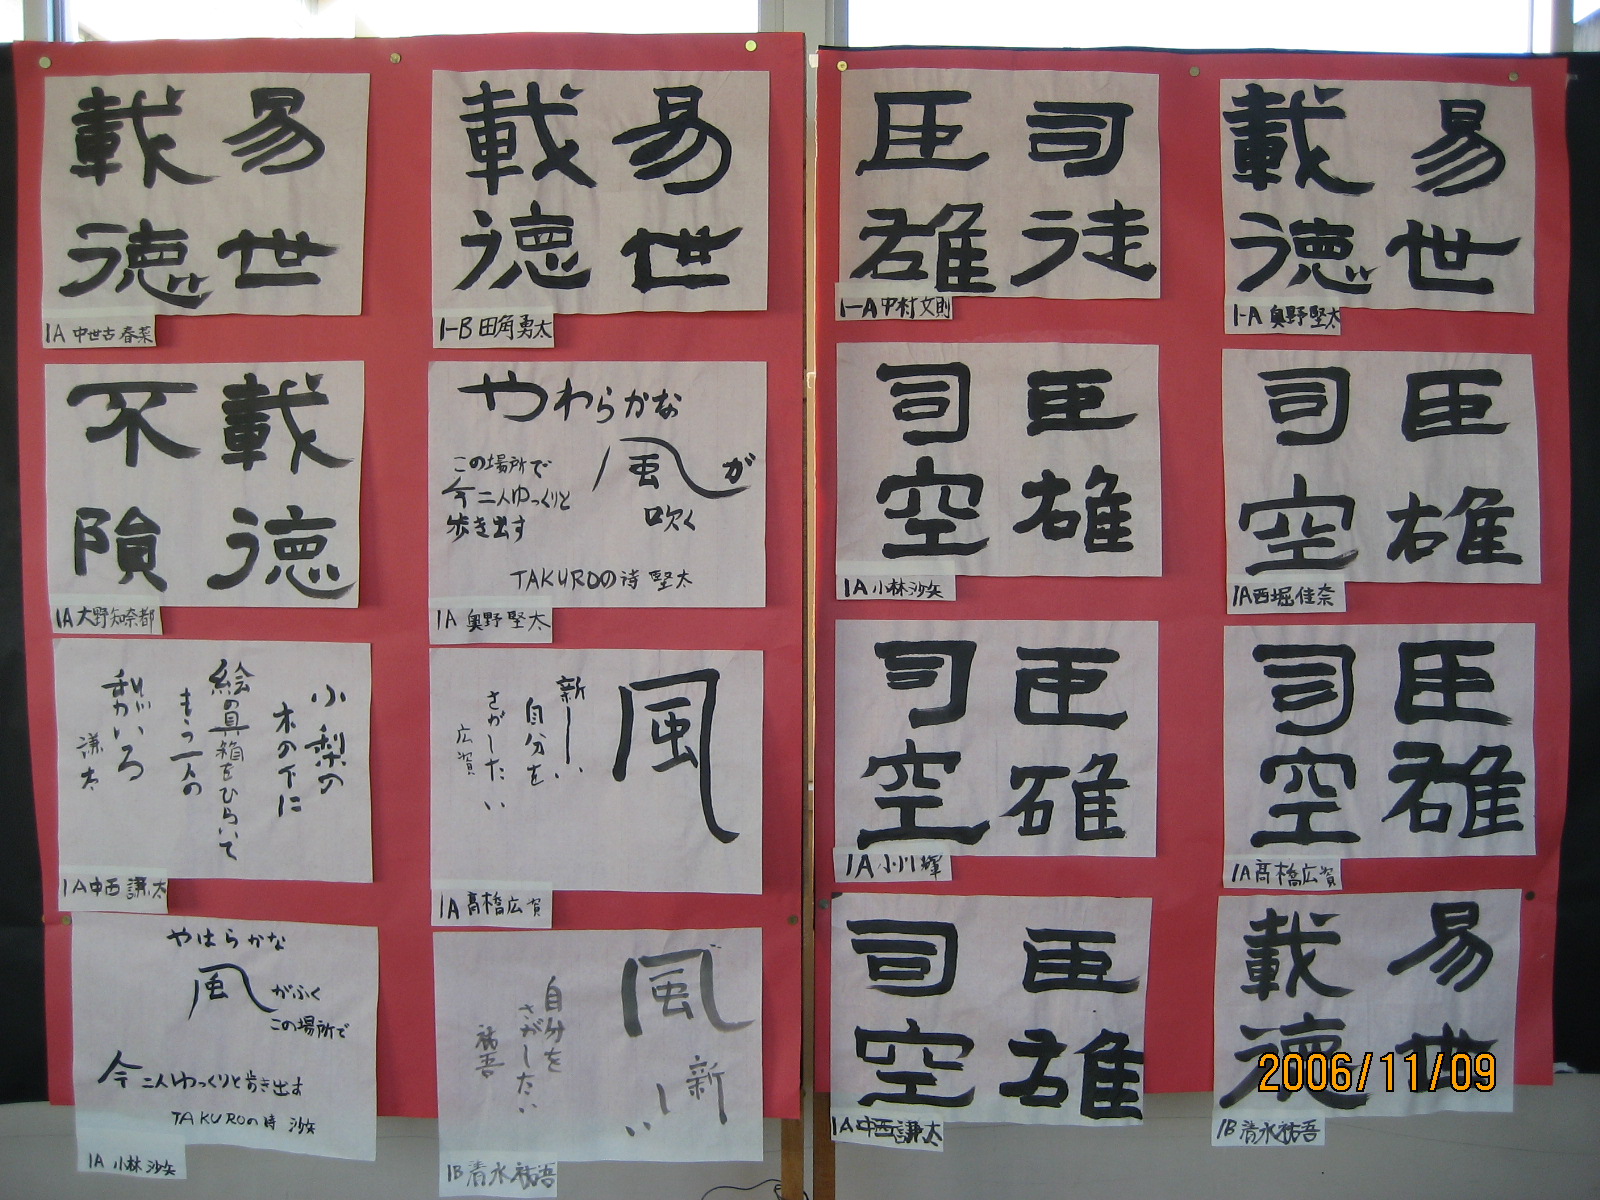 易世
載徳
1A 中世古 春菜
易世
載徳
1-B 田角勇太
載徳
不険
1A 大野知奈都
やわらかな
風が
吹く
この場所で
今二人ゆっくりと
歩き出す
TAKUROの詩 堅太
1A 奥野 堅太
小梨の
木の下に
絵の具箱をひらいて
もう一人の
謙太
1A 中西 謙太
風
新しい
自分を
さがしたい
広賀
1A 高橋広賀
やはらかな
風がふく
この場所で
今二人ゆっくりと歩き出す
TAKUROの詩 沙矢
1A 小林 沙矢
風
新しい
自分を
さがしたい
祐吾
1B 清水祐吾
司徒
臣雄
1-A 中村文則
易世
載徳
1-A 奥野堅太
臣雄
司空
1A 小林沙矢
臣雄
司空
1A 西堀佳奈
臣雄
司空
1A 小川輝
臣雄
司空
1A 高橋広賀
臣雄
司空
1A 中西謙太
易世
載徳
1B 清水祐吾
2006/11/09